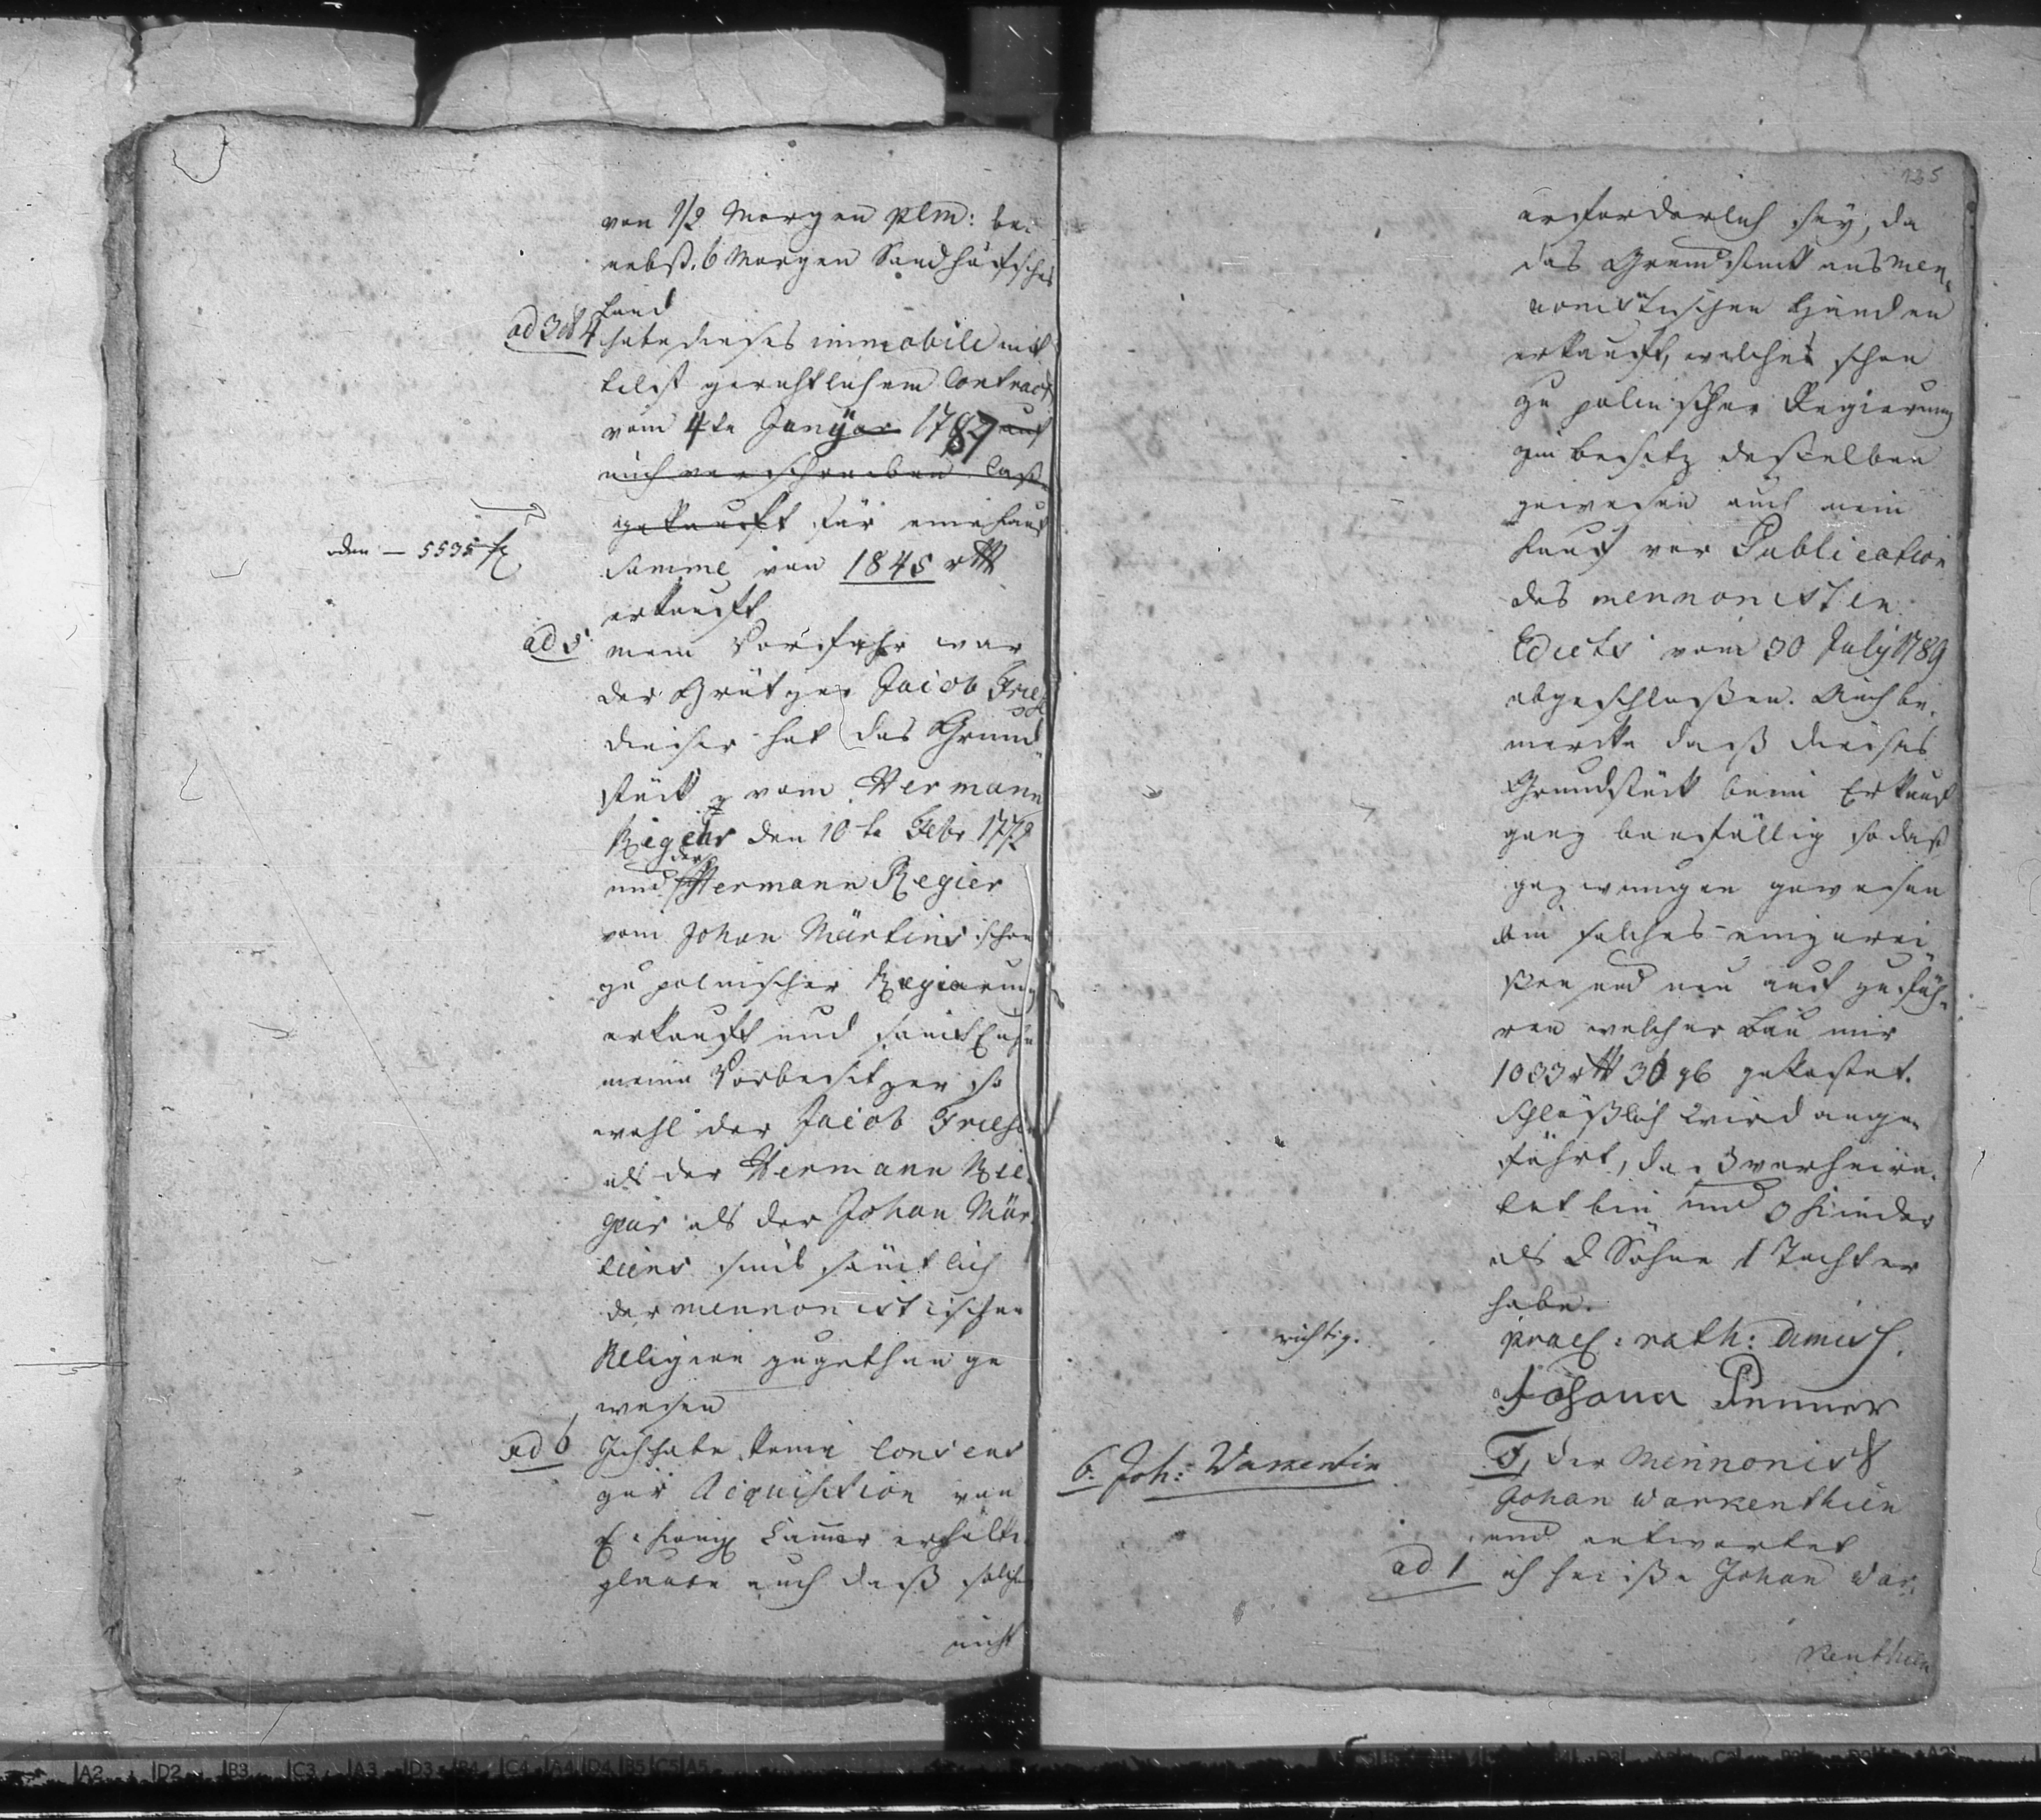 von 1/2 Morgen plm: be¬
nebst 6 Morgen Sandhöfsches
Land
ad 3 & 4 habe dieses immobile mit
telst gerichtlichem Contract
vom 4te Januar 1787 auf
mich verschreiben laß
gekauft für eine Kauf
oder — 5535 f
Summe von 1845 rtl
erkauft
ad 5 mein Vorfahr war
der Grützer Jacob Friese
dieser hat das Grund¬
stück vom Hermann
Regehr den 10te Febr 1772
und der Hermann Regier
vom Johan Märtins schon
zu polnischer Regierung
erkauft und sind
meine Vorbesitzer so
wohl der Jacob Friese
als der Hermann Re¬
gier als der Johan Mär
tins sind sämtlich
der mennonistischen
Religion zugethan ge
wesen
ad 6 Ich habe keine Consens
zur Acquisition von
E. Königl Camer erhalten
glaube auch daß solcher
nicht
135
erforderlich sey, da
das Grundstück aus men¬
nonistischen Händen
erkauft, welche schon
zu polnischer Regierung
im besitz desselben
gewesen auch mein
Kauf vor Publication
des mennonisten
Edicts vom 30 July 1789
abgeschloßen. Auch be¬
mercke daß dieses
Grundstück beim Erkauf
ganz baufällig so daß
gezwungen gewesen
bin solches einzurei¬
ßen und neu auf zu füh¬
ren welcher Bau mir
1033 rtl 30 gl gekostet.
Schlüßlich wird ange¬
führt, da verheira¬
tet bin und 3 Kinder
als 2 Söhne 1 Tochter
habe.
richtig.
prael: rath: dimiss.
Johann Penner
6. Joh: Warkentin
der Mennonist
Johan Warkenthien
und antwortet
ad 1 ich heiße Johan War¬
kenthien